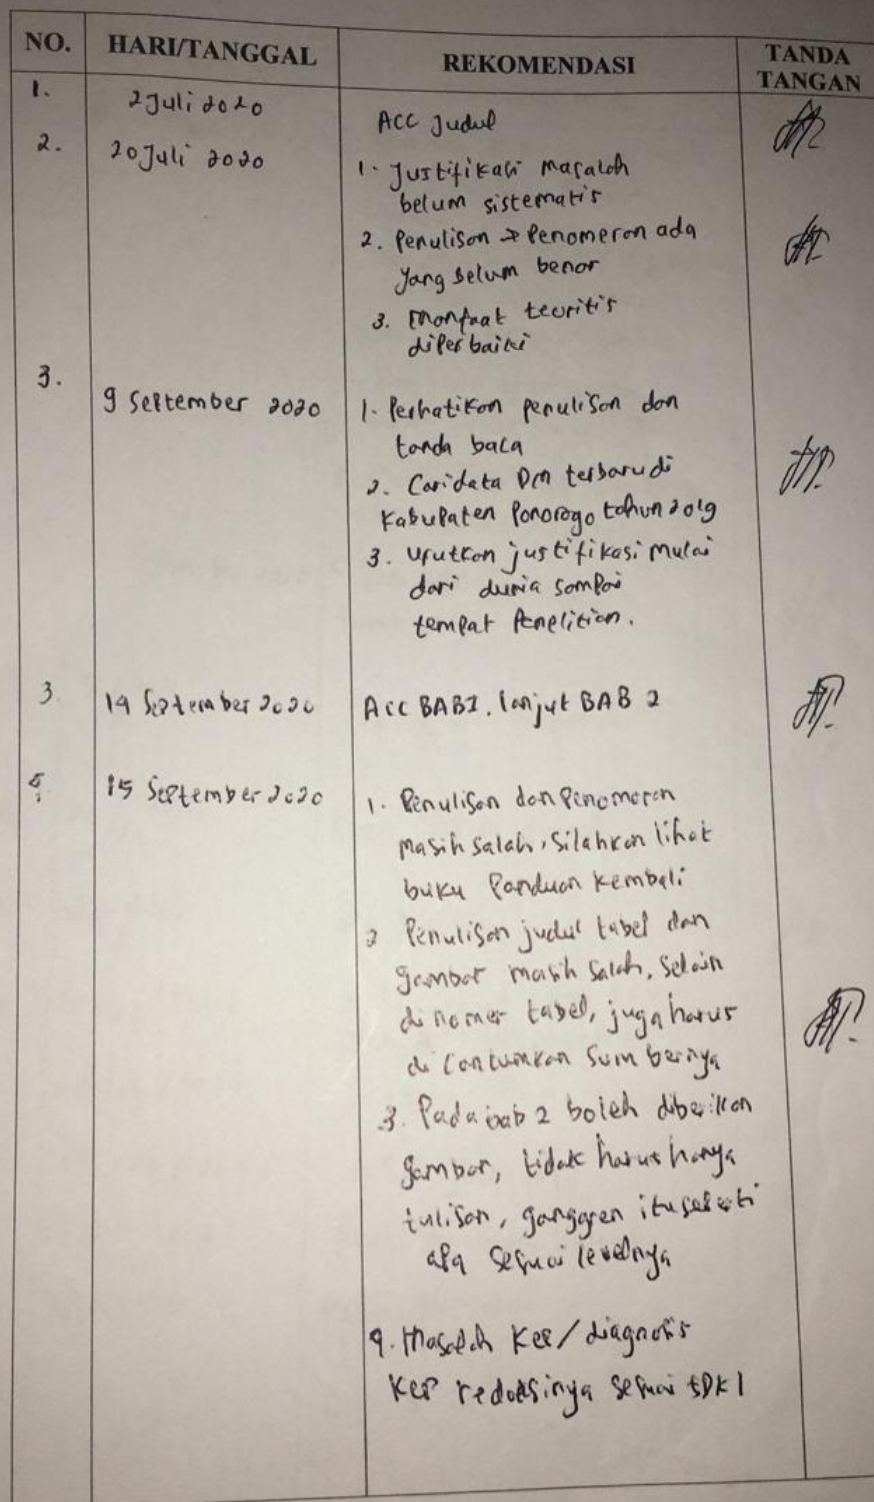 NO. HARI/TANGGAL REKOMENDASI TANDA TANGAN
1. 2 Juli 2020 ACC Judul
2. 20 Juli 2020 1. Justifikasi masalah
belum sistematis
2. Penulisan & Penomeran ada
yang belum benar
3. Manfaat teoritis
diperbaiki
3. 9 September 2020 1. Perhatikan penulisan dan
tanda baca
2. Cari data DM terbaru di
Kabupaten Ponorogo tahun 2019
3. Urutkan justifikasi mulai
dari dunia sampai
tempat Penelitian.
3. 14 September 2020 Acc BAB 1. lanjut BAB 2
15 September 2020 1. Penulisan dan Penomeran
masih salah, silahkan lihat
buku Panduan kembali
2 Penulisan judul tabel dan
gambar masih salah, selain
di nomer tabel, juga harus
di cantumkan sumbernya
3. Pada bab 2 boleh diberikan
gambar, tidak harus hanya
tulisan, ganggren itu seperti
apa sesuai levelnya
4. Masalah Kep/diagnosis
Kep redaksinya sesuai SDKI